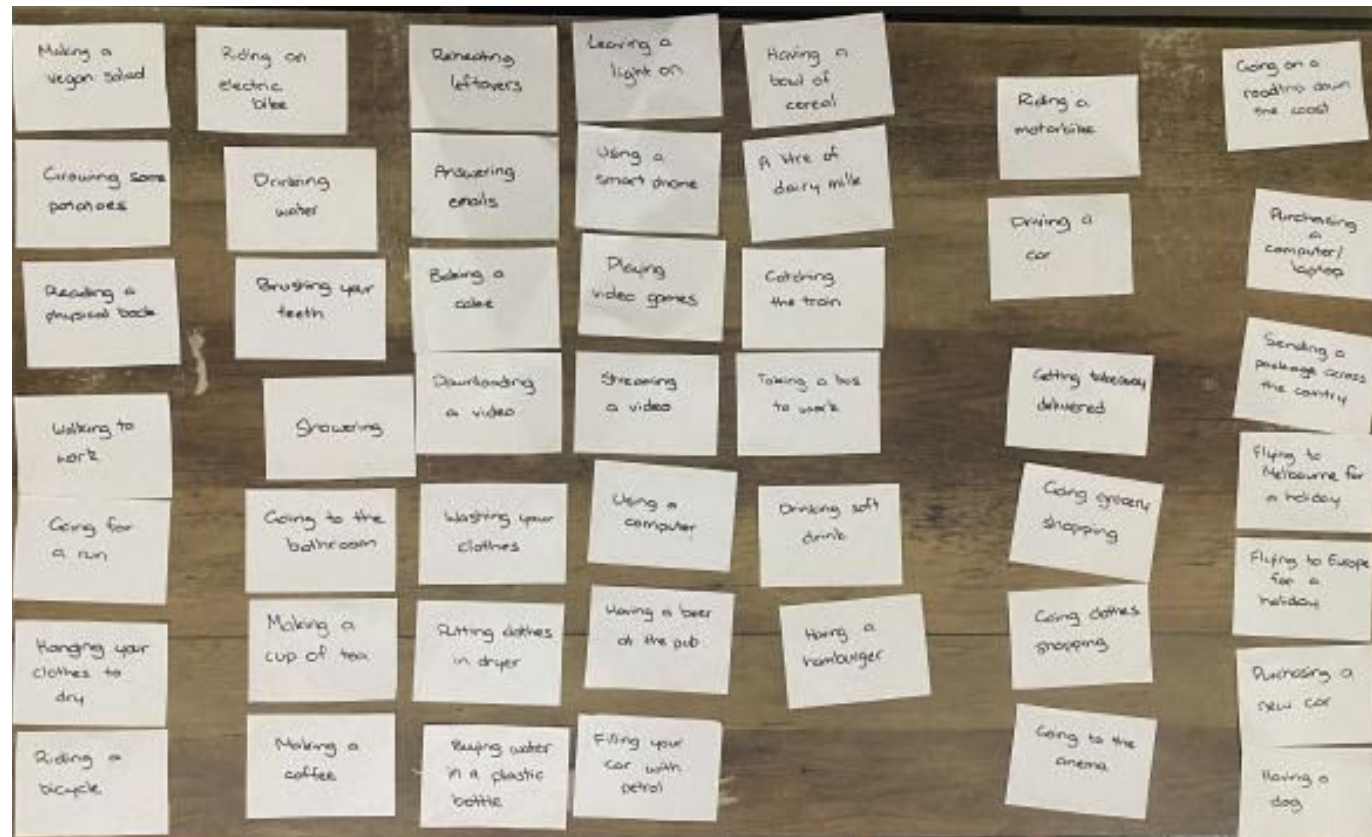 Making a
vegan salad
Growing some
potatoes
Reading a
physical book
Walking to
work
Going for
a run
Hanging your
clothes to
dry
Riding a
bicycle
Riding an
electric
bike
Drinking
water
Brushing your
teeth
Showering
Going to the
bathroom
Making a
cup of tea
Making a
coffee
Reheating
leftovers
Answering
emails
Baking a
cake
Downloading
a video
Washing your
clothes
Putting clothes
in dryer
Buying water
in a plastic
bottle
Leaving a
light on
Using a
smart phone
Playing
video games
Streaming
a video
Using a
computer
Having a beer
at the pub
Filling your
car with
petrol
Having a
bowl of
cereal
A litre of
dairy milk
Catching
the train
Taking a bus
to work
Drinking soft
drink
Having a
hamburger
Riding a
motorbike
Driving a
car
Getting takeaway
delivered
Going grocery
shopping
Going clothes
shopping
Going to the
cinema
Going on a
roadtrip down
the coast
Purchasing
a
computer/
laptop
Sending a
package across
the country
Flying to
Melbourne for
a holiday
Flying to Europe
for a
holiday
Purchasing a
new car
Having a
dog